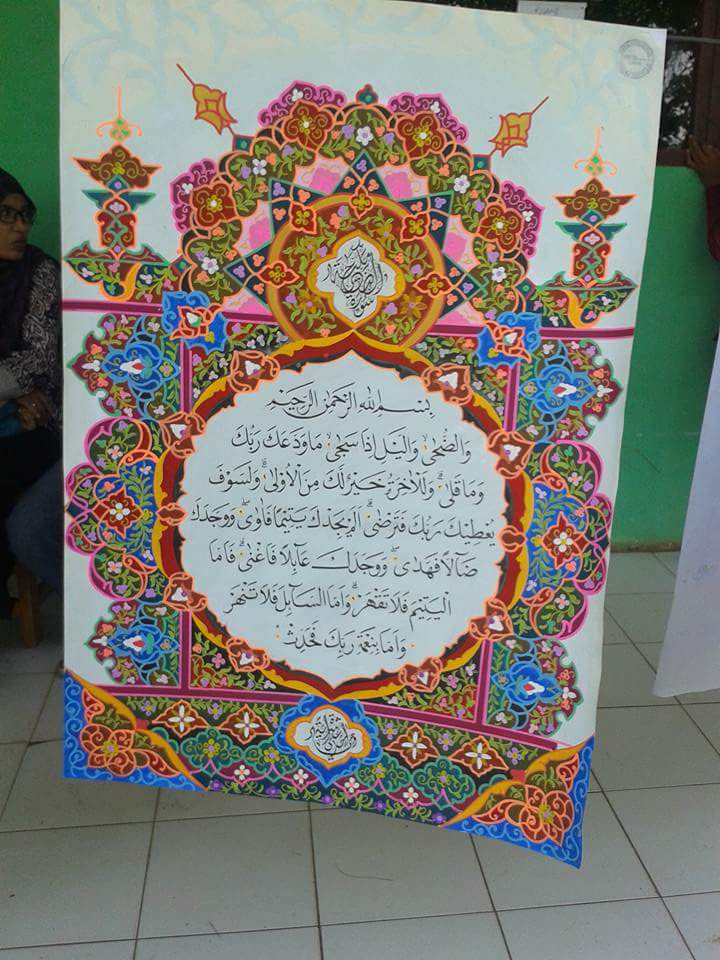 سورة
بِسْمِ اللهِ الرَّحْمٰنِ الرَّحِيْمِ
وَالضُّحٰى وَالَّيْلِ اِذَا سَجٰى مَا وَدَّعَكَ رَبُّكَ
وَمَا قَلٰى وَلَلْاٰخِرَةُ خَيْرٌ لَّكَ مِنَ الْاُوْلٰى وَلَسَوْفَ
يُعْطِيْكَ رَبُّكَ فَتَرْضٰى اَلَمْ يَجِدْكَ يَتِيْمًا فَاٰوٰى وَوَجَدَكَ
ضَاۤلًّا فَهَدٰى وَوَجَدَكَ عَاۤىِٕلًا فَاَغْنٰى فَاَمَّا
الْيَتِيْمَ فَلَا تَقْهَرْ وَاَمَّا السَّاۤىِٕلَ فَلَا تَنْهَرْ
وَاَمَّا بِنِعْمَةِ رَبِّكَ فَحَدِّثْ